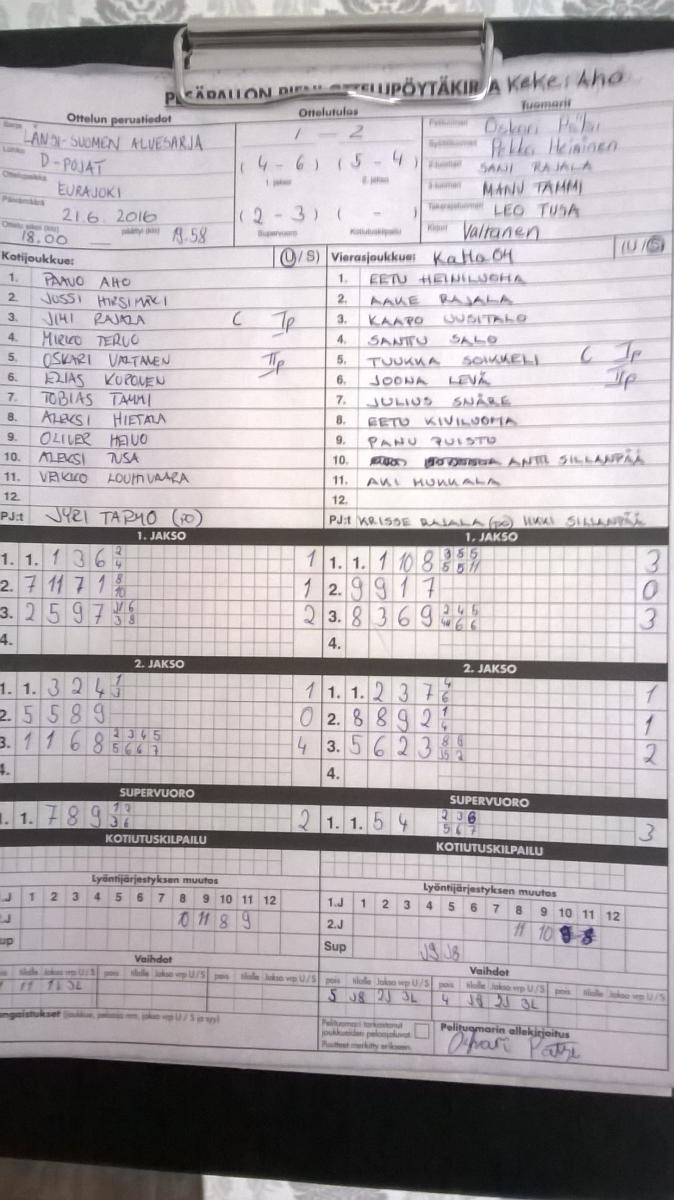 Keke: Aho
Ottelun perustiedot
Ottelutulos
Tuomarit
LÄNSI-SUOMEN ALUESARJA
D-POJAT
EURAJOKI
21.6. 2016
18.00
19.58
1 - 2
(4 - 6) (5 - 4)
(2 - 3) ( - )
Supervuoro Kotiutuskilpailu
Oskari
Pekka Heininen
SANI RAJALA
MANU TAMMI
LEO TUSA
Valtanen
Kotijoukkue: (U/S)
1. PAAVO AHO
2. JUSSI HIRSIMÄKI
3. JIMI RAJALA C Ip
4. MIRKO TERVO
5. OSKARI VALTANEN IIp
6. ELIAS KUPONEN
7. TOBIAS TAMMI
8. ALEKSI HIETALA
9. OLIVER HEIVO
10. ALEKSI TUSA
11. VEIKKO LOUHIVAARA
12.
PJ:t JYRI TARMO (PO)
Vierasjoukkue: KaMa 04 (U/S)
1. EETU HEINILUOMA
2. AAKE RAJALA
3. KAAPO UUSITALO
4. SANTTU SALO
5. TUUKKA SOIKKELI C Ip
6. JOONA LEVÄ IIp
7. JULIUS SNÅRE
8. EETU KIVILUOMA
9. PANU PUISTO
10. ANTTI SILLANPÄÄ
11. AKI MUKKALA
12.
PJ:t KRISSE RAJALA (PO) SILLANPÄÄ
1. JAKSO
1. 1. 1 3 6 2 4 1
2. 7 11 7 1 8 10 1
3. 2 5 9 7 6 3 8 2
4.
1. JAKSO
1. 1. 1 10 8 3 5 5 5 5 11 3
2. 9 9 1 7 0
3. 8 3 6 9 2 4 5 6 6 3
4.
2. JAKSO
1. 1. 3 2 4 1 3 1
2. 5 5 8 9 0
3. 1 1 6 8 2 3 4 5 5 6 6 7 4
4.
2. JAKSO
1. 1. 2 3 7 4 6 1
2. 8 8 9 2 1 4 1
3. 5 6 2 3 8 2 2
4.
SUPERVUORO
1. 1. 7 8 9 3 6 2
SUPERVUORO
1. 1. 5 4 2 3 6 5 6 7 3
KOTIUTUSKILPAILU
KOTIUTUSKILPAILU
Lyöntijärjestyksen muutos
1 2 3 4 5 6 7 8 9 10 11 12
10 11 8 9
Lyöntijärjestyksen muutos
1.J 1 2 3 4 5 6 7 8 9 10 11 12
2.J 11 10 9 8
Sup J9 J8
Vaihdot
tilalle Jakso vrp U/S pois tilalle Jakso vrp U/S pois tilalle Jakso vrp U/S
Vaihdot
pois tilalle Jakso vrp U/S pois tilalle Jakso vrp U/S pois tilalle Jakso vrp U/S
5 J8 2J 3L 4 J9 2J 3L
Pelituomari tarkastanut
joukkueiden pelaajaluvat
Puutteet merkitty erikseen.
Pelituomarin allekirjoitus